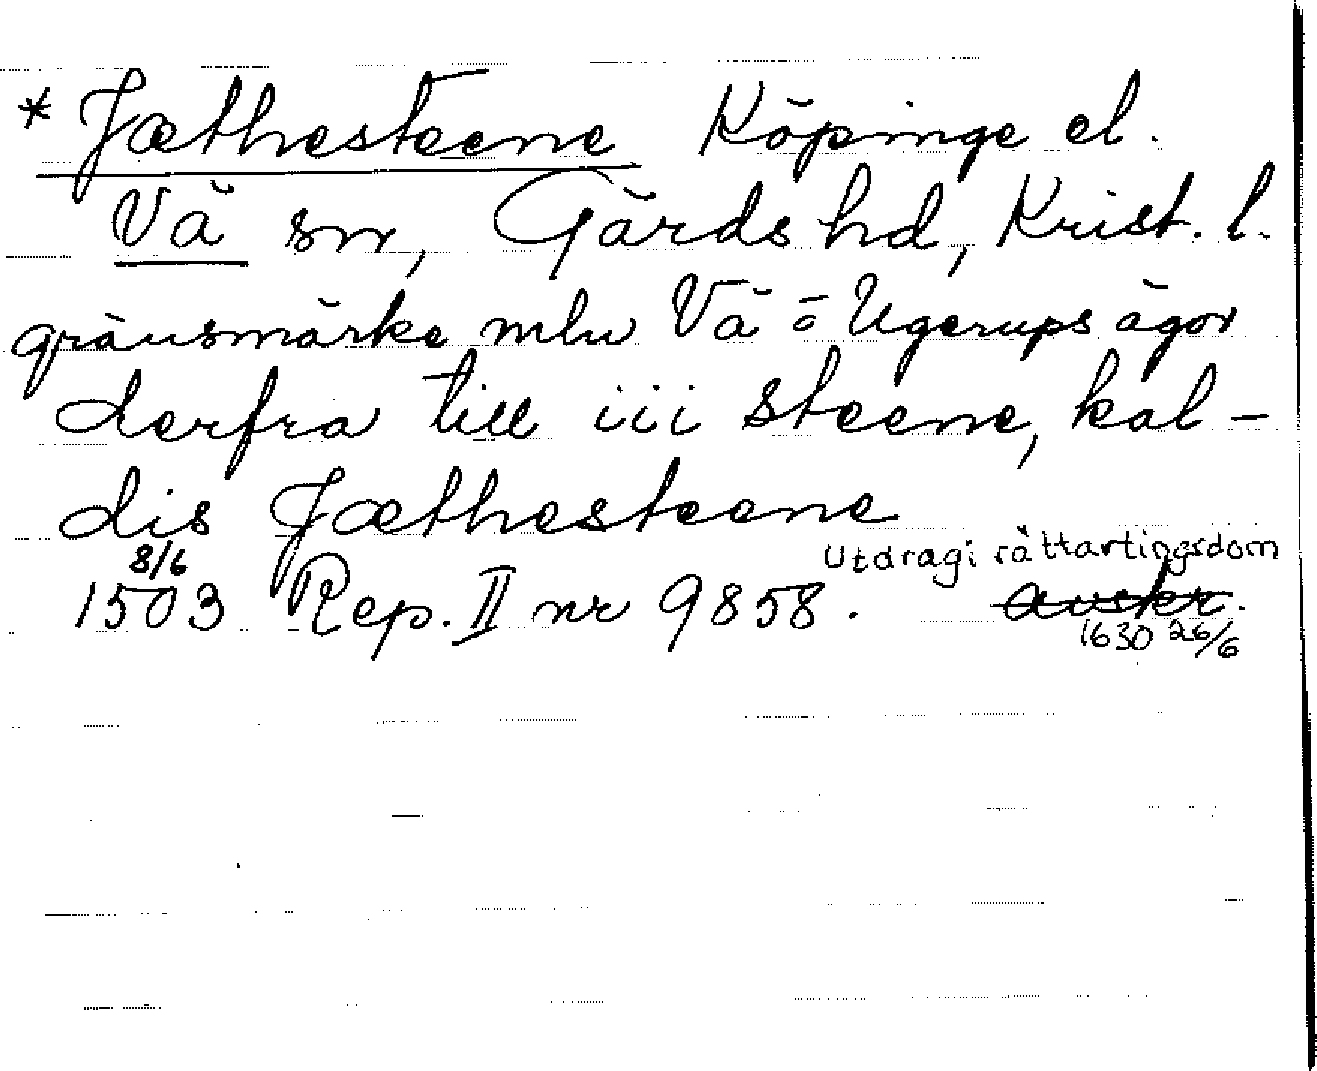 * Jæthesteene Köpinge el.
Vä sn, Gärds hd, Krist. l.
gränsmärke mln Vä o Ugerups ägor
derfra till iii steene, kal-
dis Jæthesteene
8/6 Utdrag i rättartingsdom
1503 Rep. II nr 9858. avskr.
1630 26/6